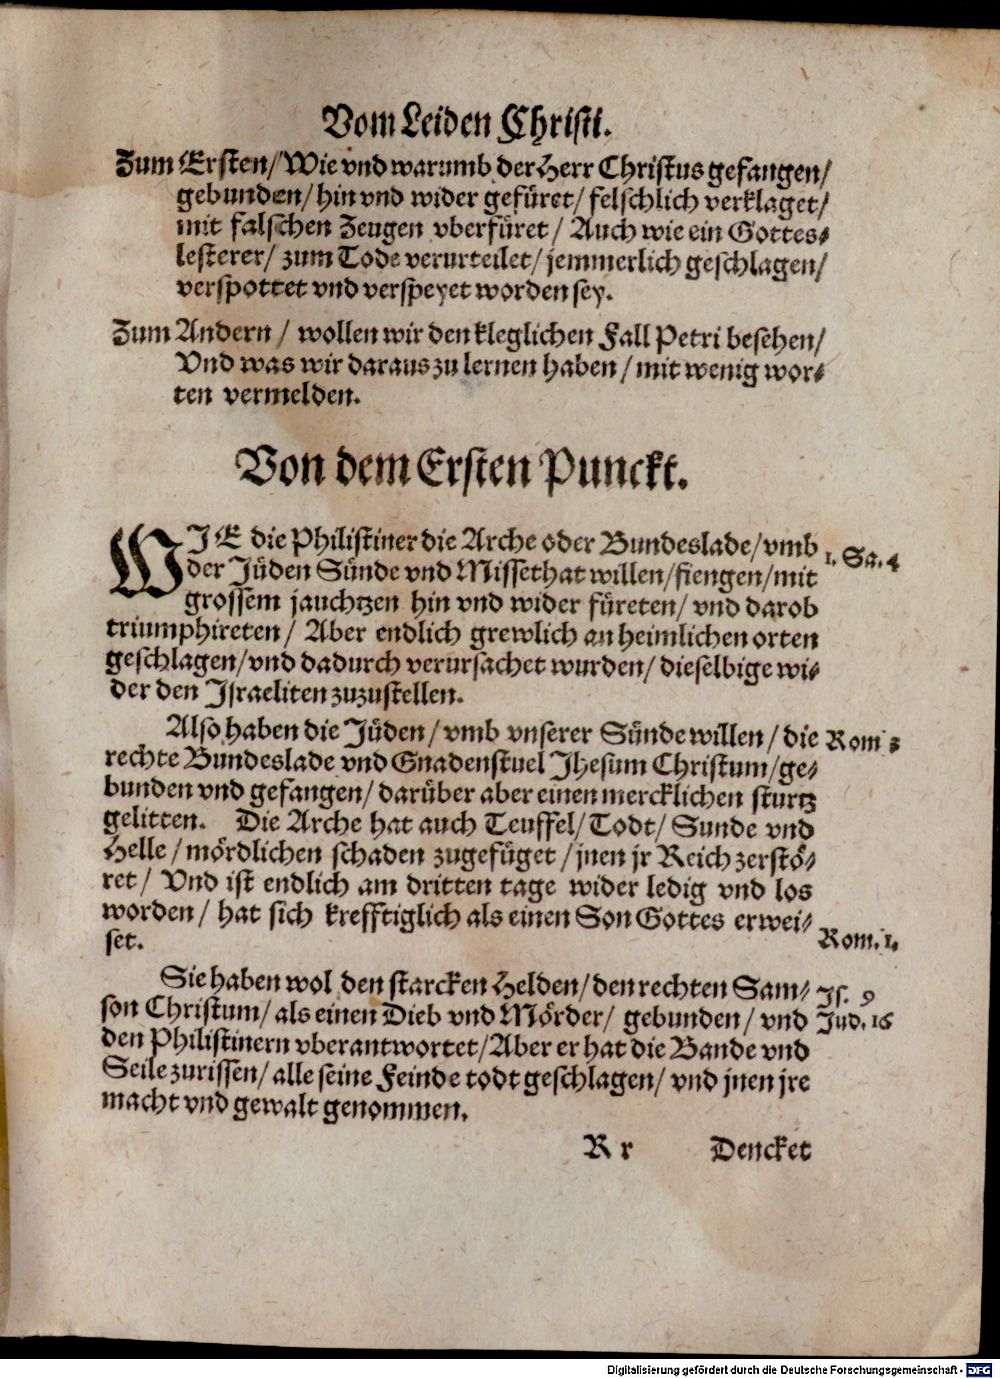 Vom Leiden Christi.
Zum Ersten/ Wie vnd warumb der Herr Christus gefangen/
gebunden/ hin vnd wider gefüret/ felschlich verklaget/
mit falschen Zeugen vberfüret/ Auch wie ein Gottes-
lesterer/ zum Tode verurteilet/ jemmerlich geschlagen/
verspottet vnd verspeyet worden sey.
Zum Andern/ wollen wir den kleglichen Fall Petri besehen/
Vnd was wir daraus zu lernen haben/ mit wenig wor-
ten vermelden.
Von dem Ersten Punckt.
WJE die Philistiner die Arche oder Bundeslade/ vmb 1. Sa. 4
der Jüden Sünde vnd Missethat willen/ fiengen/ mit
grossem jauchtzen hin vnd wider füreten/ vnd darob
triumphireten/ Aber endlich grewlich an heimlichen orten
geschlagen/ vnd dadurch verursachet wurden/ dieselbige wi-
der den Jsraeliten zuzustellen.
Also haben die Jüden/ vmb vnserer Sünde willen/ die Rom 3
rechte Bundeslade vnd Gnadenstuel Jhesum Christum/ ge-
bunden vnd gefangen/ darüber aber einen mercklichen sturtz
gelitten. Die Arche hat auch Teuffel/ Todt/ Sunde vnd
Helle/ mördlichen schaden zugefüget/ jnen jr Reich zerstö-
ret/ Vnd ist endlich am dritten tage wider ledig vnd los
worden/ hat sich krefftiglich als einen Son Gottes erwei-
set. Rom. 1.
Sie haben wol den starcken Helden/ den rechten Sam- Js. 9
son Christum/ als einen Dieb vnd Mörder/ gebunden/ vnd Jud. 16
den Philistinern vberantwortet/ Aber er hat die Bande vnd
Seile zurissen/ alle seine Feinde todt geschlagen/ vnd jnen jre
macht vnd gewalt genommen.
R r Dencket
Digitalisierung gefördert durch die Deutsche Forschungsgemeinschaft - DFG